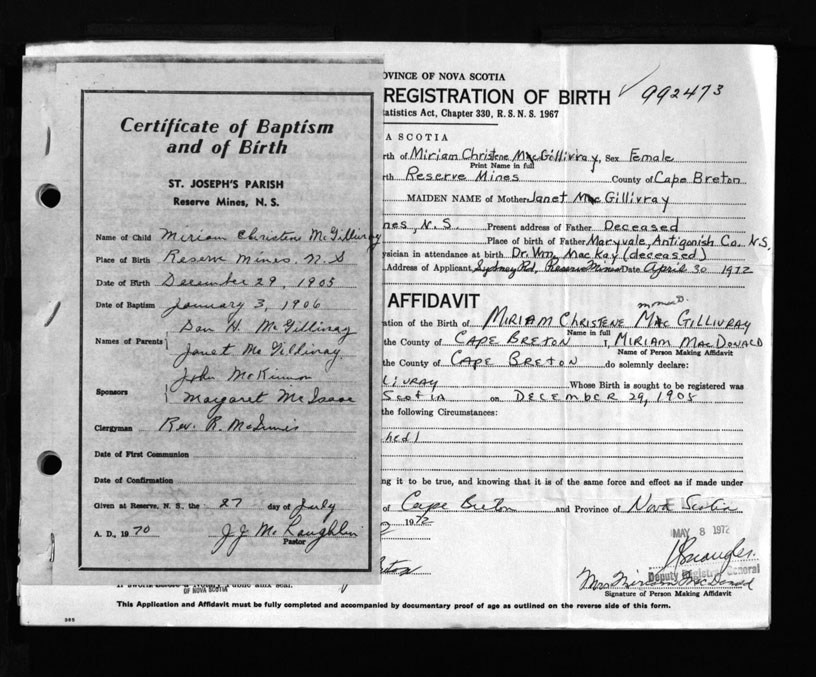 Certificate of Baptism
and of Birth
ST. JOSEPH'S PARISH
Reserve Mines, N. S.
Name of Child Miriam Christene McGillivray
Place of Birth Reserve Mines. N.S
Date of Birth December 29, 1905
Date of Baptism January 3, 1906
Names of Parents Dan H. McGillivray
Janet McGillivray
Sponsors John McKinnon
Margaret McIsaac
Clergyman Rev. R. McInnis
Date of First Communion
Date of Confirmation
Given at Reserve, N. S., the 27 day of July
A. D., 1970 J.J. McLaughlin
Pastor
OVINCE OF NOVA SCOTIA
REGISTRATION OF BIRTH 992473
tatistics Act, Chapter 330, R. S. N. S. 1967
A SCOTIA
rth of Miriam Christene MacGillivray, Sex Female
Print Name in full
rth Reserve Mines County of Cape Breton
MAIDEN NAME of Mother Janet MacGillivray
nes, N.S. Present address of Father Deceased
Place of birth of Father Maryvale, Antigonish Co. N.S.
ysician in attendance at birth Dr. Wm. MacKay (deceased)
Address of Applicant Sydney Rd, Reserve Mines Date April 30 1972
AFFIDAVIT
ation of the Birth of MIRIAM CHRISTENE MAC GILLIVRAY
Name in full
the County of CAPE BRETON I, MIRIAM MACDONALD
Name of Person Making Affidavit
the County of CAPE BRETON do solemnly declare:
LIVRAY Whose Birth is sought to be registered was
SCOTIA on DECEMBER 29, 1905
the following Circumstances:
hed)
ng it to be true, and knowing that it is of the same force and effect as if made under
of Cape Breton and Province of Nova Scotia
1972
MAY 8 1972
Deputy Registrar General
Mrs Miriam MacDonald
Signature of Person Making Affidavit
OF NOVA SCOTIA
This Application and Affidavit must be fully completed and accompanied by documentary proof of age as outlined on the reverse side of this form.